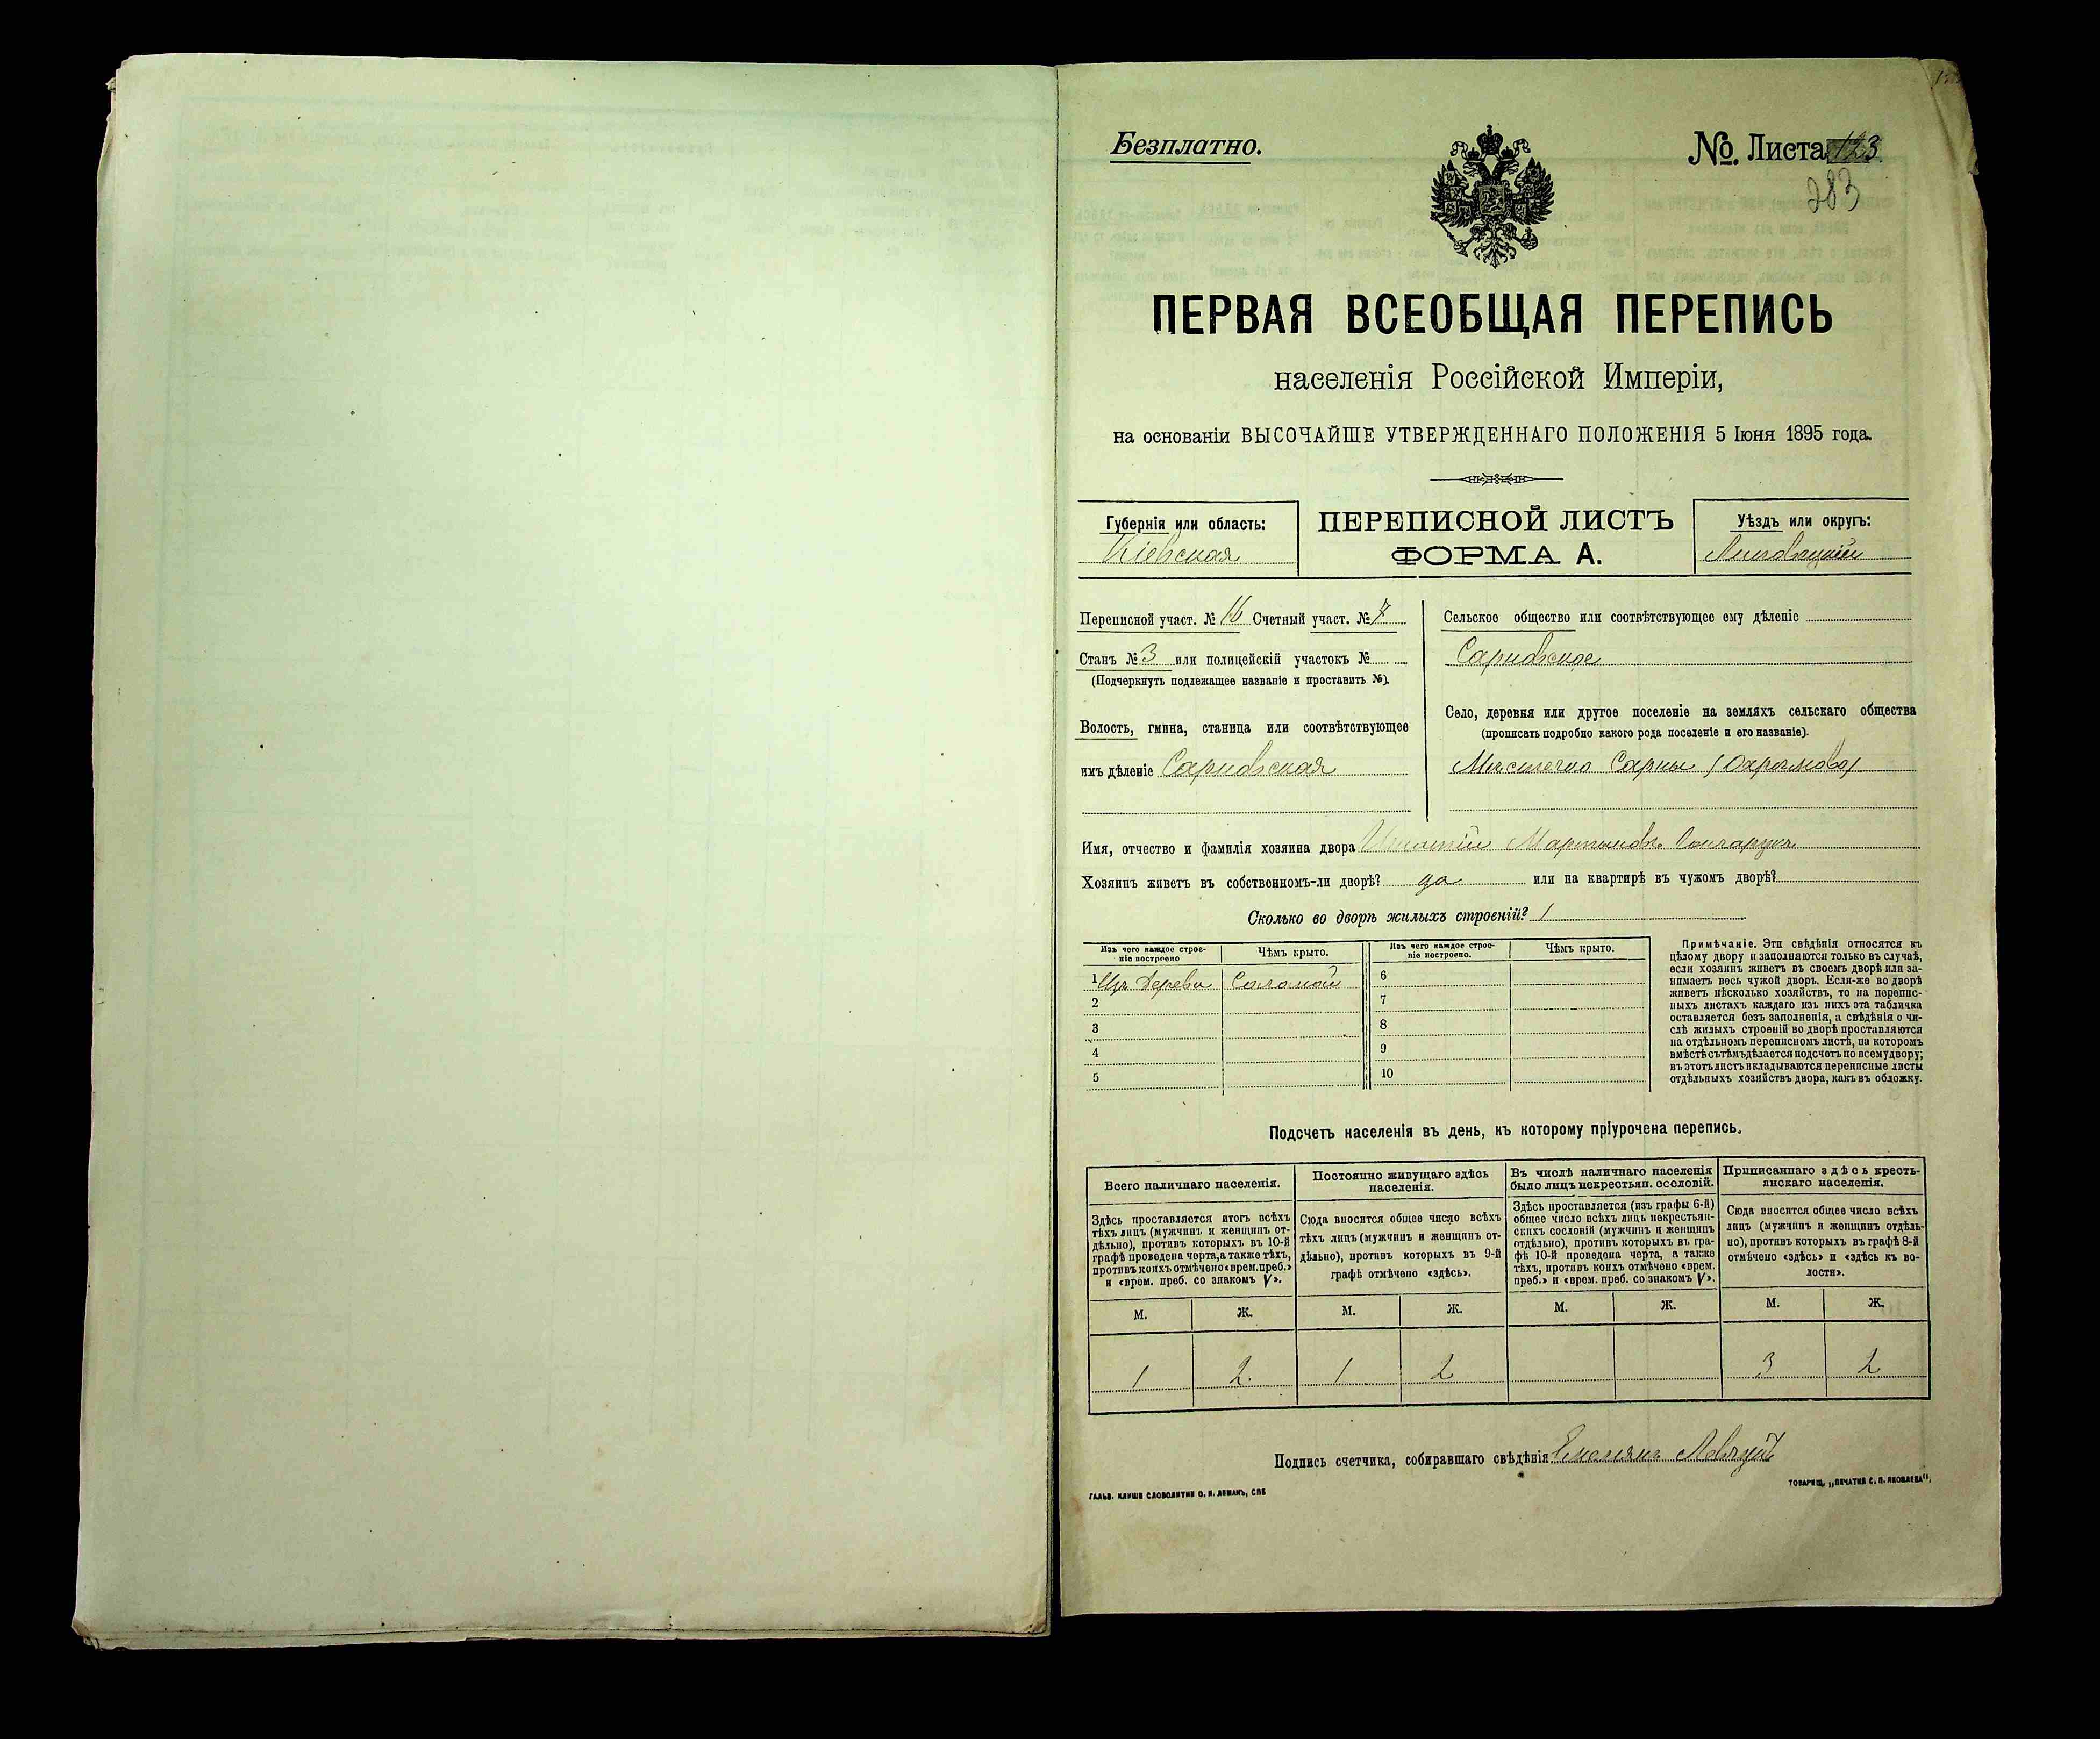 Безплатно.
№. Листа 123.
283
ПЕРВАЯ ВСЕОБЩАЯ ПЕРЕПИСЬ
населенія Россійской Имперіи,
на основаніи ВЫСОЧАЙШЕ УТВЕРЖДЕННАГО ПОЛОЖЕНІЯ 5 Іюня 1895 года.
Губернія или область:
Кіевская
ПЕРЕПИСНОЙ ЛИСТЪ
ФОРМА А.
Уѣздъ или округъ:
Липовецкій
Переписной участ. № 16 Счетный участ. № 7
Станъ № 3 или полицейскій участокъ №
(Подчеркнуть подлежащее названіе и проставить №).
Волость, гмина, станица или соотвѣтствующее
имъ дѣленіе Сарновская
Сельское общество или соотвѣтствующее ему дѣленіе
Сарновское
Село, деревня или другое поселеніе на земляхъ сельскаго общества
(прописать подробно какого рода поселеніе и его названіе).
Мѣстечко Сарны (Охрамово)
Имя, отчество и фамилія хозяина двора Игнатій Мартыновъ Гончарукъ
Хозяинъ живетъ въ собственномъ-ли дворѣ? да или на квартирѣ въ чужомъ дворѣ?
Сколько во дворѣ жилыхъ строеній? 1
Изъ чего каждое строе-
ніе построено
Чѣмъ крыто.
Изъ чего каждое строе-
ніе построено.
Чѣмъ крыто.
1 Изъ дерева Соломой
2
3
4
5
6
7
8
9
10
Примѣчаніе. Эти свѣдѣнія относятся къ
цѣлому двору и заполняются только въ случаѣ,
если хозяинъ живетъ въ своемъ дворѣ или за-
нимаетъ весь чужой дворъ. Если-же во дворѣ
живетъ нѣсколько хозяйствъ, то на перепис-
ныхъ листахъ каждаго изъ нихъ эта табличка
оставляется безъ заполненія, а свѣдѣнія о чи-
слѣ жилыхъ строеній во дворѣ проставляются
на отдѣльномъ переписномъ листѣ, на которомъ
вмѣстѣ съ тѣмъ дѣлается подсчетъ по всему двору;
въ этотъ листъ вкладываются переписные листы
отдѣльныхъ хозяйствъ двора, какъ въ обложку.
Подсчетъ населенія въ день, къ которому пріурочена перепись.
Всего наличнаго населенія.
Здѣсь проставляется итогъ всѣхъ
тѣхъ лицъ (мужчинъ и женщинъ от-
дѣльно), противъ которыхъ въ 10-й
графѣ проведена черта, а также тѣхъ,
противъ коихъ отмѣчено «врем. преб.»
и «врем. преб. со знакомъ V».
Постоянно живущаго здѣсь
населенія.
Сюда вносится общее число всѣхъ
тѣхъ лицъ (мужчинъ и женщинъ от-
дѣльно), противъ которыхъ въ 9-й
графѣ отмѣчено «здѣсь».
Въ числѣ наличнаго населенія
было лицъ некрестьян. сословій.
Здѣсь проставляется (изъ графы 6-й)
общее число всѣхъ лицъ некрестьян-
скихъ сословій (мужчинъ и женщинъ
отдѣльно), противъ которыхъ въ гра-
фѣ 10-й проведена черта, а также
тѣхъ, противъ коихъ отмѣчено «врем.
преб.» и «врем. преб. со знакомъ V».
Приписаннаго здѣсь кресть-
янскаго населенія.
Сюда вносится общее число всѣхъ
лицъ (мужчинъ и женщинъ отдѣль-
но), противъ которыхъ въ графѣ 8-й
отмѣчено «здѣсь» и «здѣсь къ во-
лости».
М. Ж. М. Ж. М. Ж. М. Ж.
1 2 1 2 3 2
Подпись счетчика, собиравшаго свѣдѣнія Емельянъ Левчукъ
ГАЛЬВ. КЛИШЕ СЛОВОЛИТНИ О. И. ЛЕМАНЪ, СПБ
ТОВАРИЩ. „ПЕЧАТНЯ С. П. ЯКОВЛЕВА".